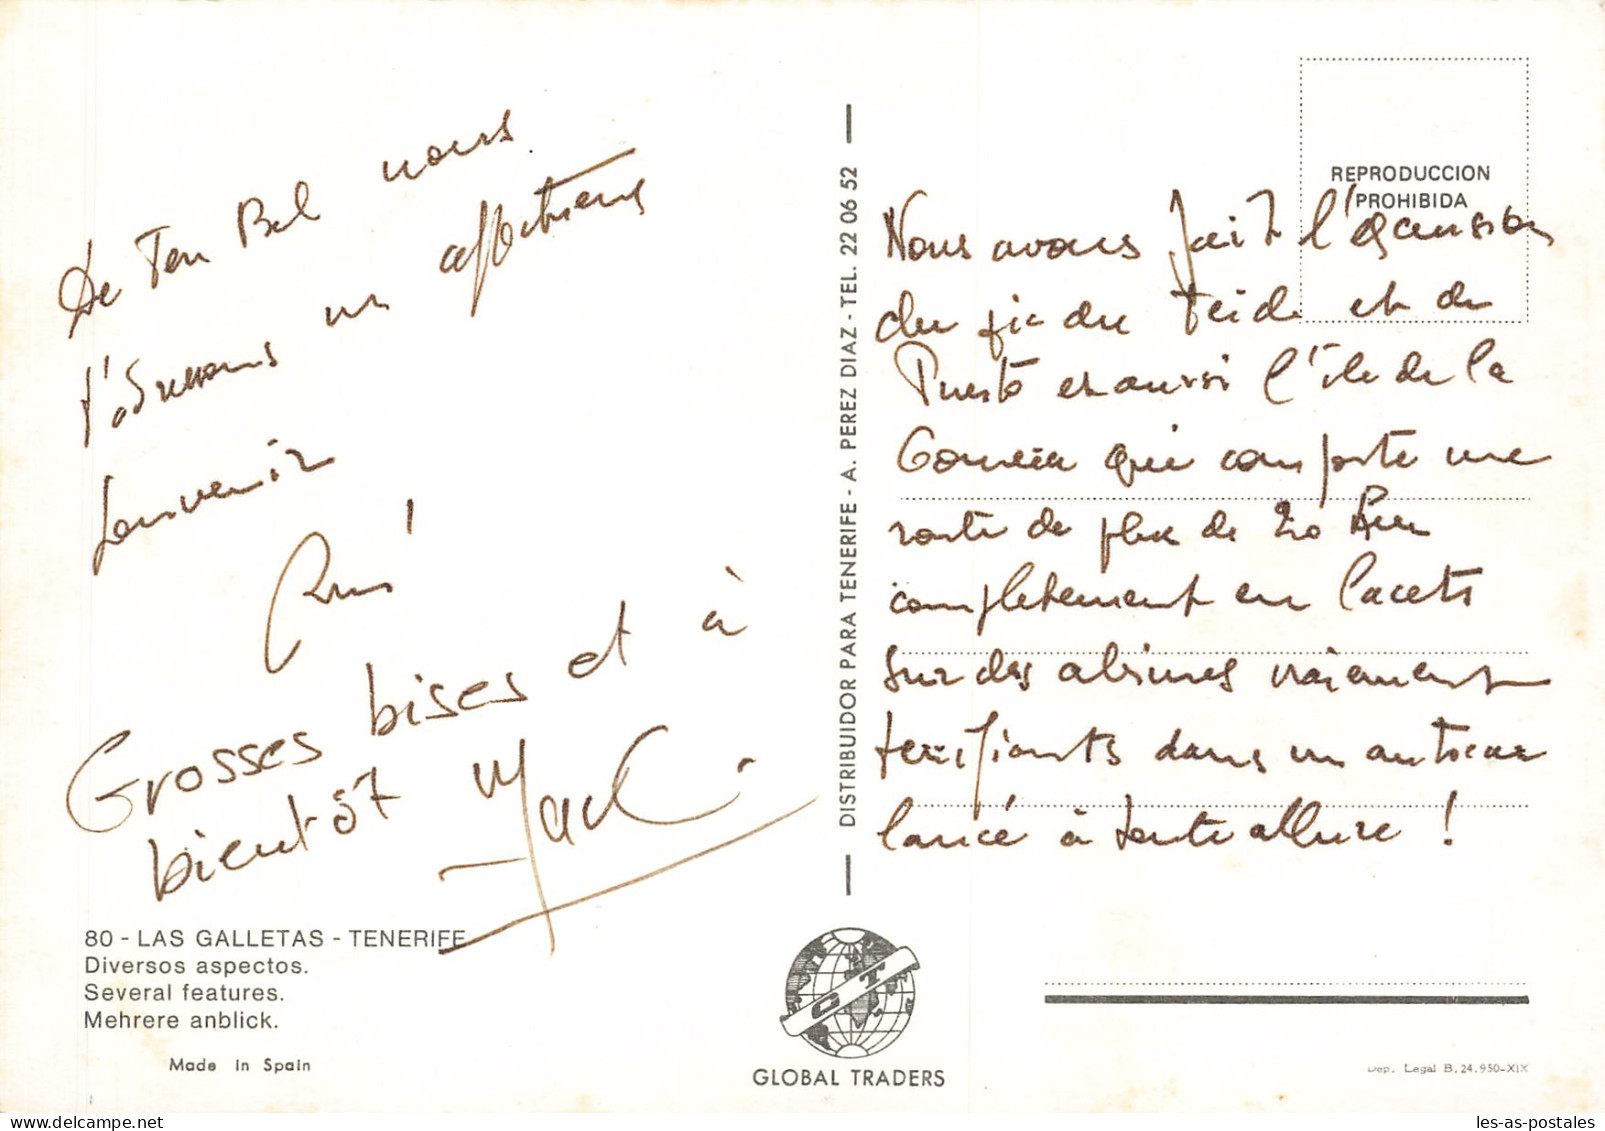 De Ten Bel nous
t'adressons un affectueux
souvenir
René
Grosses bises et à
bientôt Mack
80 - LAS GALLETAS - TENERIFE
Diversos aspectos.
Several features.
Mehrere anblick.
Made in Spain
DISTRIBUIDOR PARA TENERIFE - A. PEREZ DIAZ - TEL. 22 06 52
GT
GLOBAL TRADERS
REPRODUCCION
PROHIBIDA
Nous avons fait l'excursion
du pic du Teide et de
Puerto et aussi l'île de la
Gomera qui comporte une
route de plus de 20 km
complètement en lacets
sur des abîmes vraiment
terrifiants dans un autocar
lancé à toute allure !
Dep. Legal B. 24.950-XIX
les-as-postales